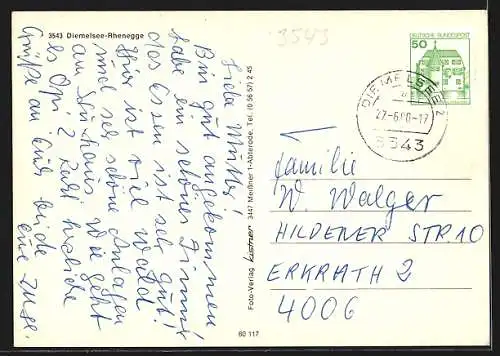 3543 Diemelsee-Rhenegge
Liebe Mutter!
Bin gut angekommen
habe ein schönes Zimmer
das Essen ist sehr gut!
Hier ist viel Wald
und sehr schöne Anlagen
am Kurhaus Wie geht
es Opi? Recht herzliche
Grüße an Euch beide
eure Inge.
Foto-Verlag Küstner 3447 Meißner 1-Abterode. Tel. (0 56 57) 2 45
60 117
3543
DEUTSCHE BUNDESPOST
50
DIEMELSEE 2
a
27.-6.80-17
3543
Familie
W. Walger
HILDENER STR.10
ERKRATH 2
4006